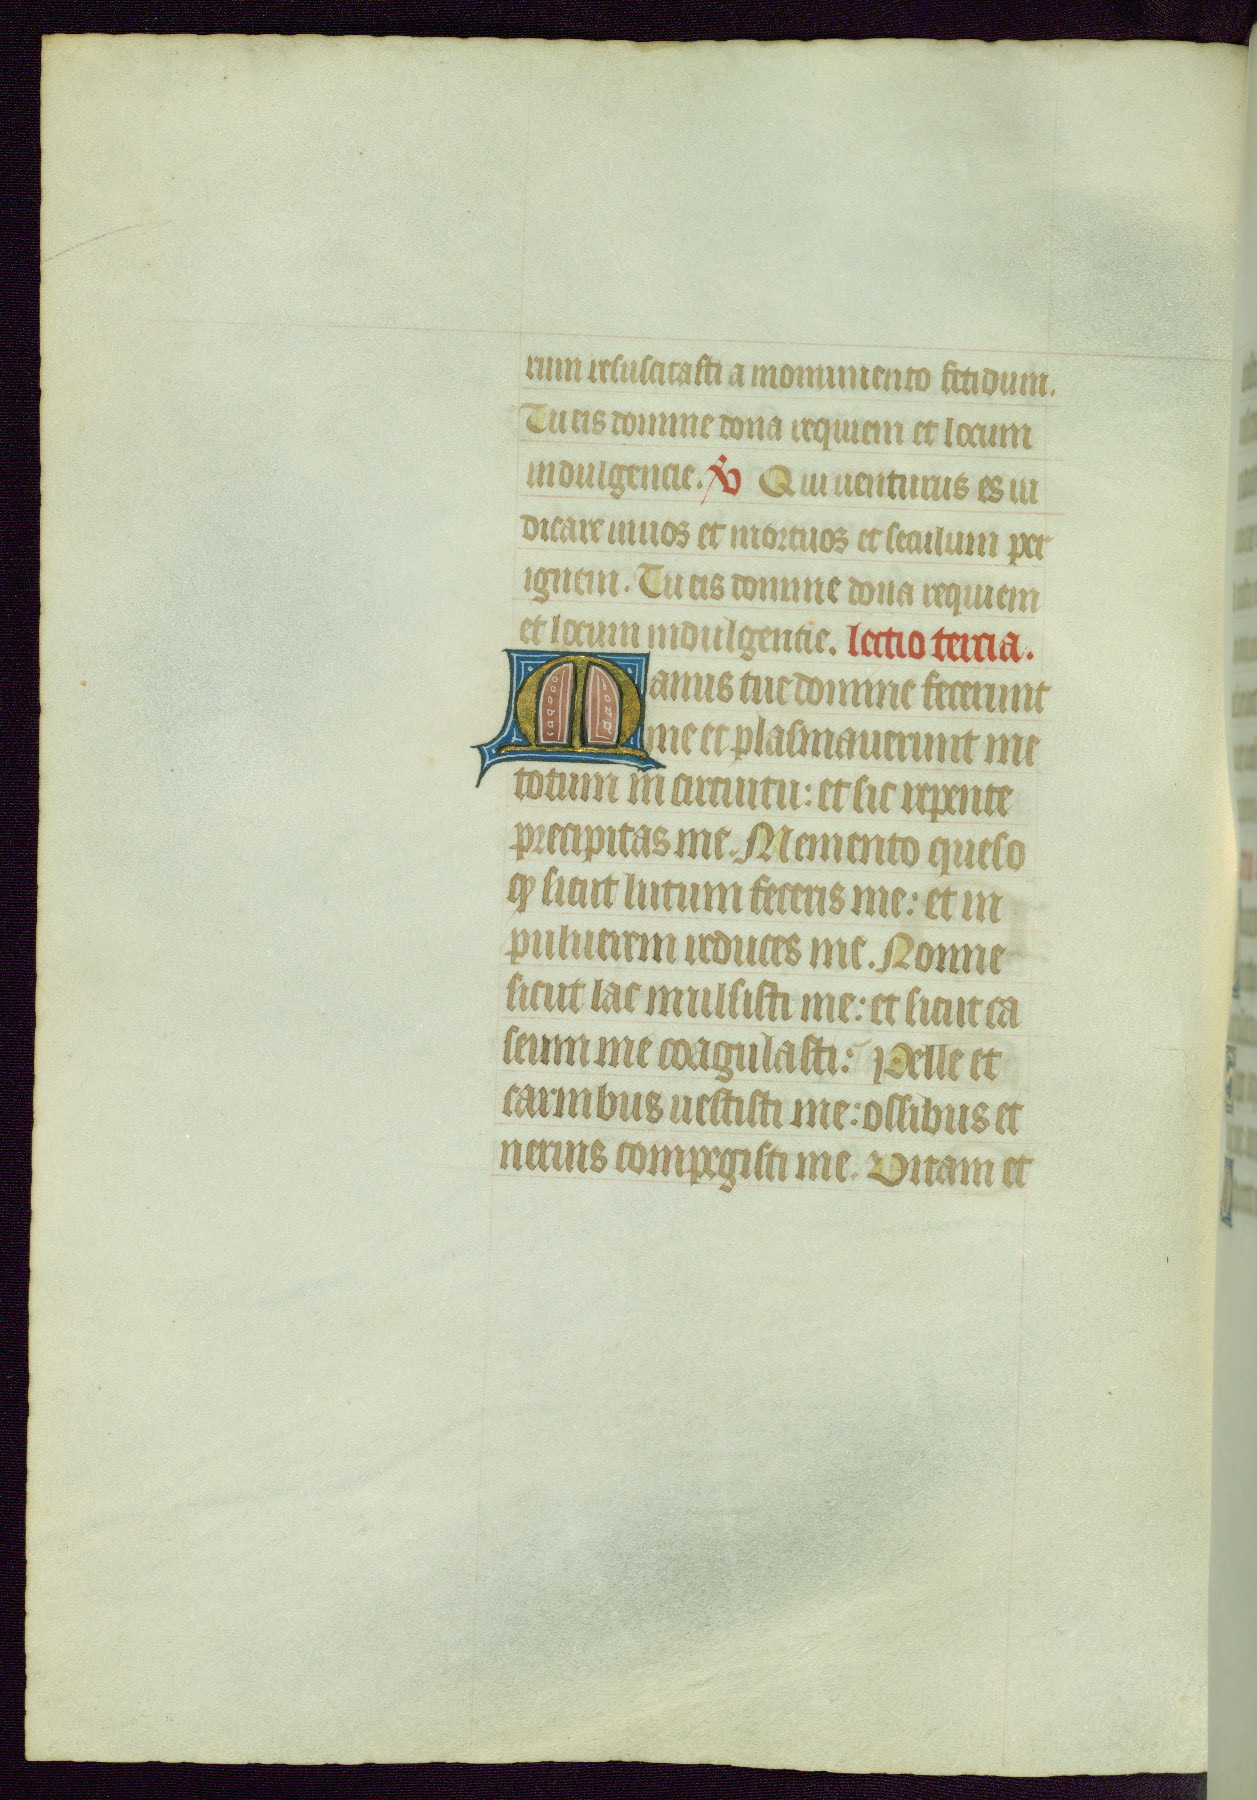 rum resuscitasti a monumento fetidum.
Tu eis domine dona requiem et locum
indulgencie. V Qui uenturus es iu
dicare uiuos et mortuos et seculum per
ignem. Tu eis domine dona requiem
et locum indulgentie. lectio tercia.
Manus tue domine fecerunt
me et plasmauerunt me
totum in circuitu: et sic repente
precipitas me. Memento queso
qꝫ sicut lutum feceris me: et in
puluerem reduces me. Nonne
sicut lac mulsisti me: et sicut ca
seum me coagulasti: Pelle et
carnibus uestisti me: ossibus et
neruis compegisti me. Vitam et